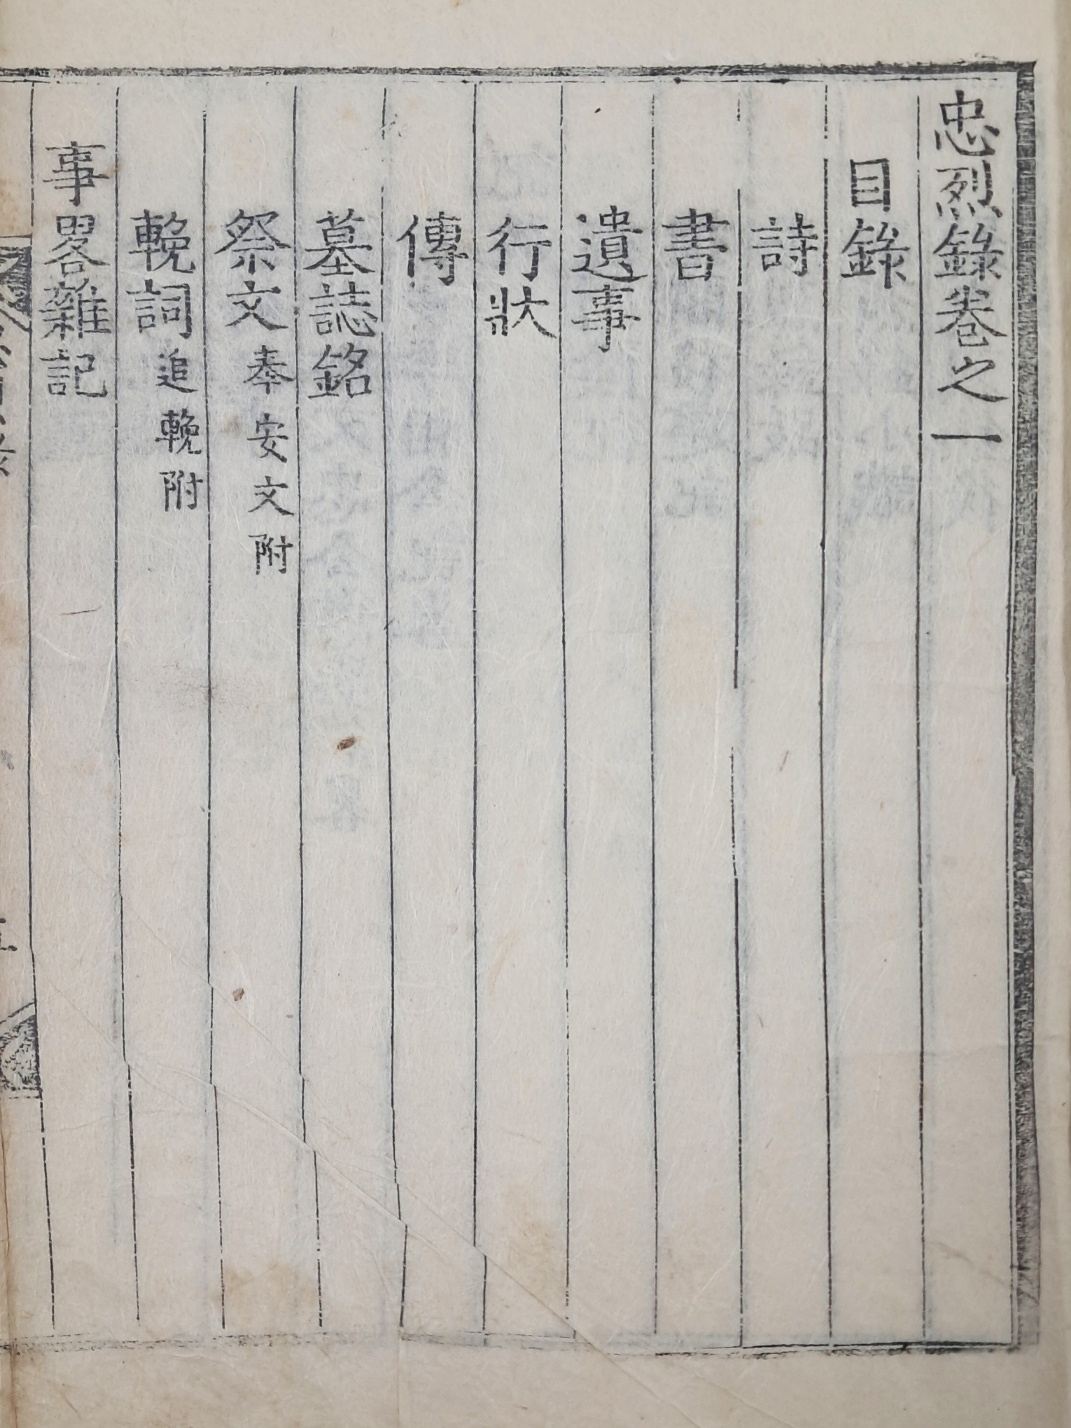 忠烈錄卷之一
目錄
詩
書
遺事
行狀
傳
墓誌銘
祭文 奉安文附
輓詞 追輓附
事畧雜記